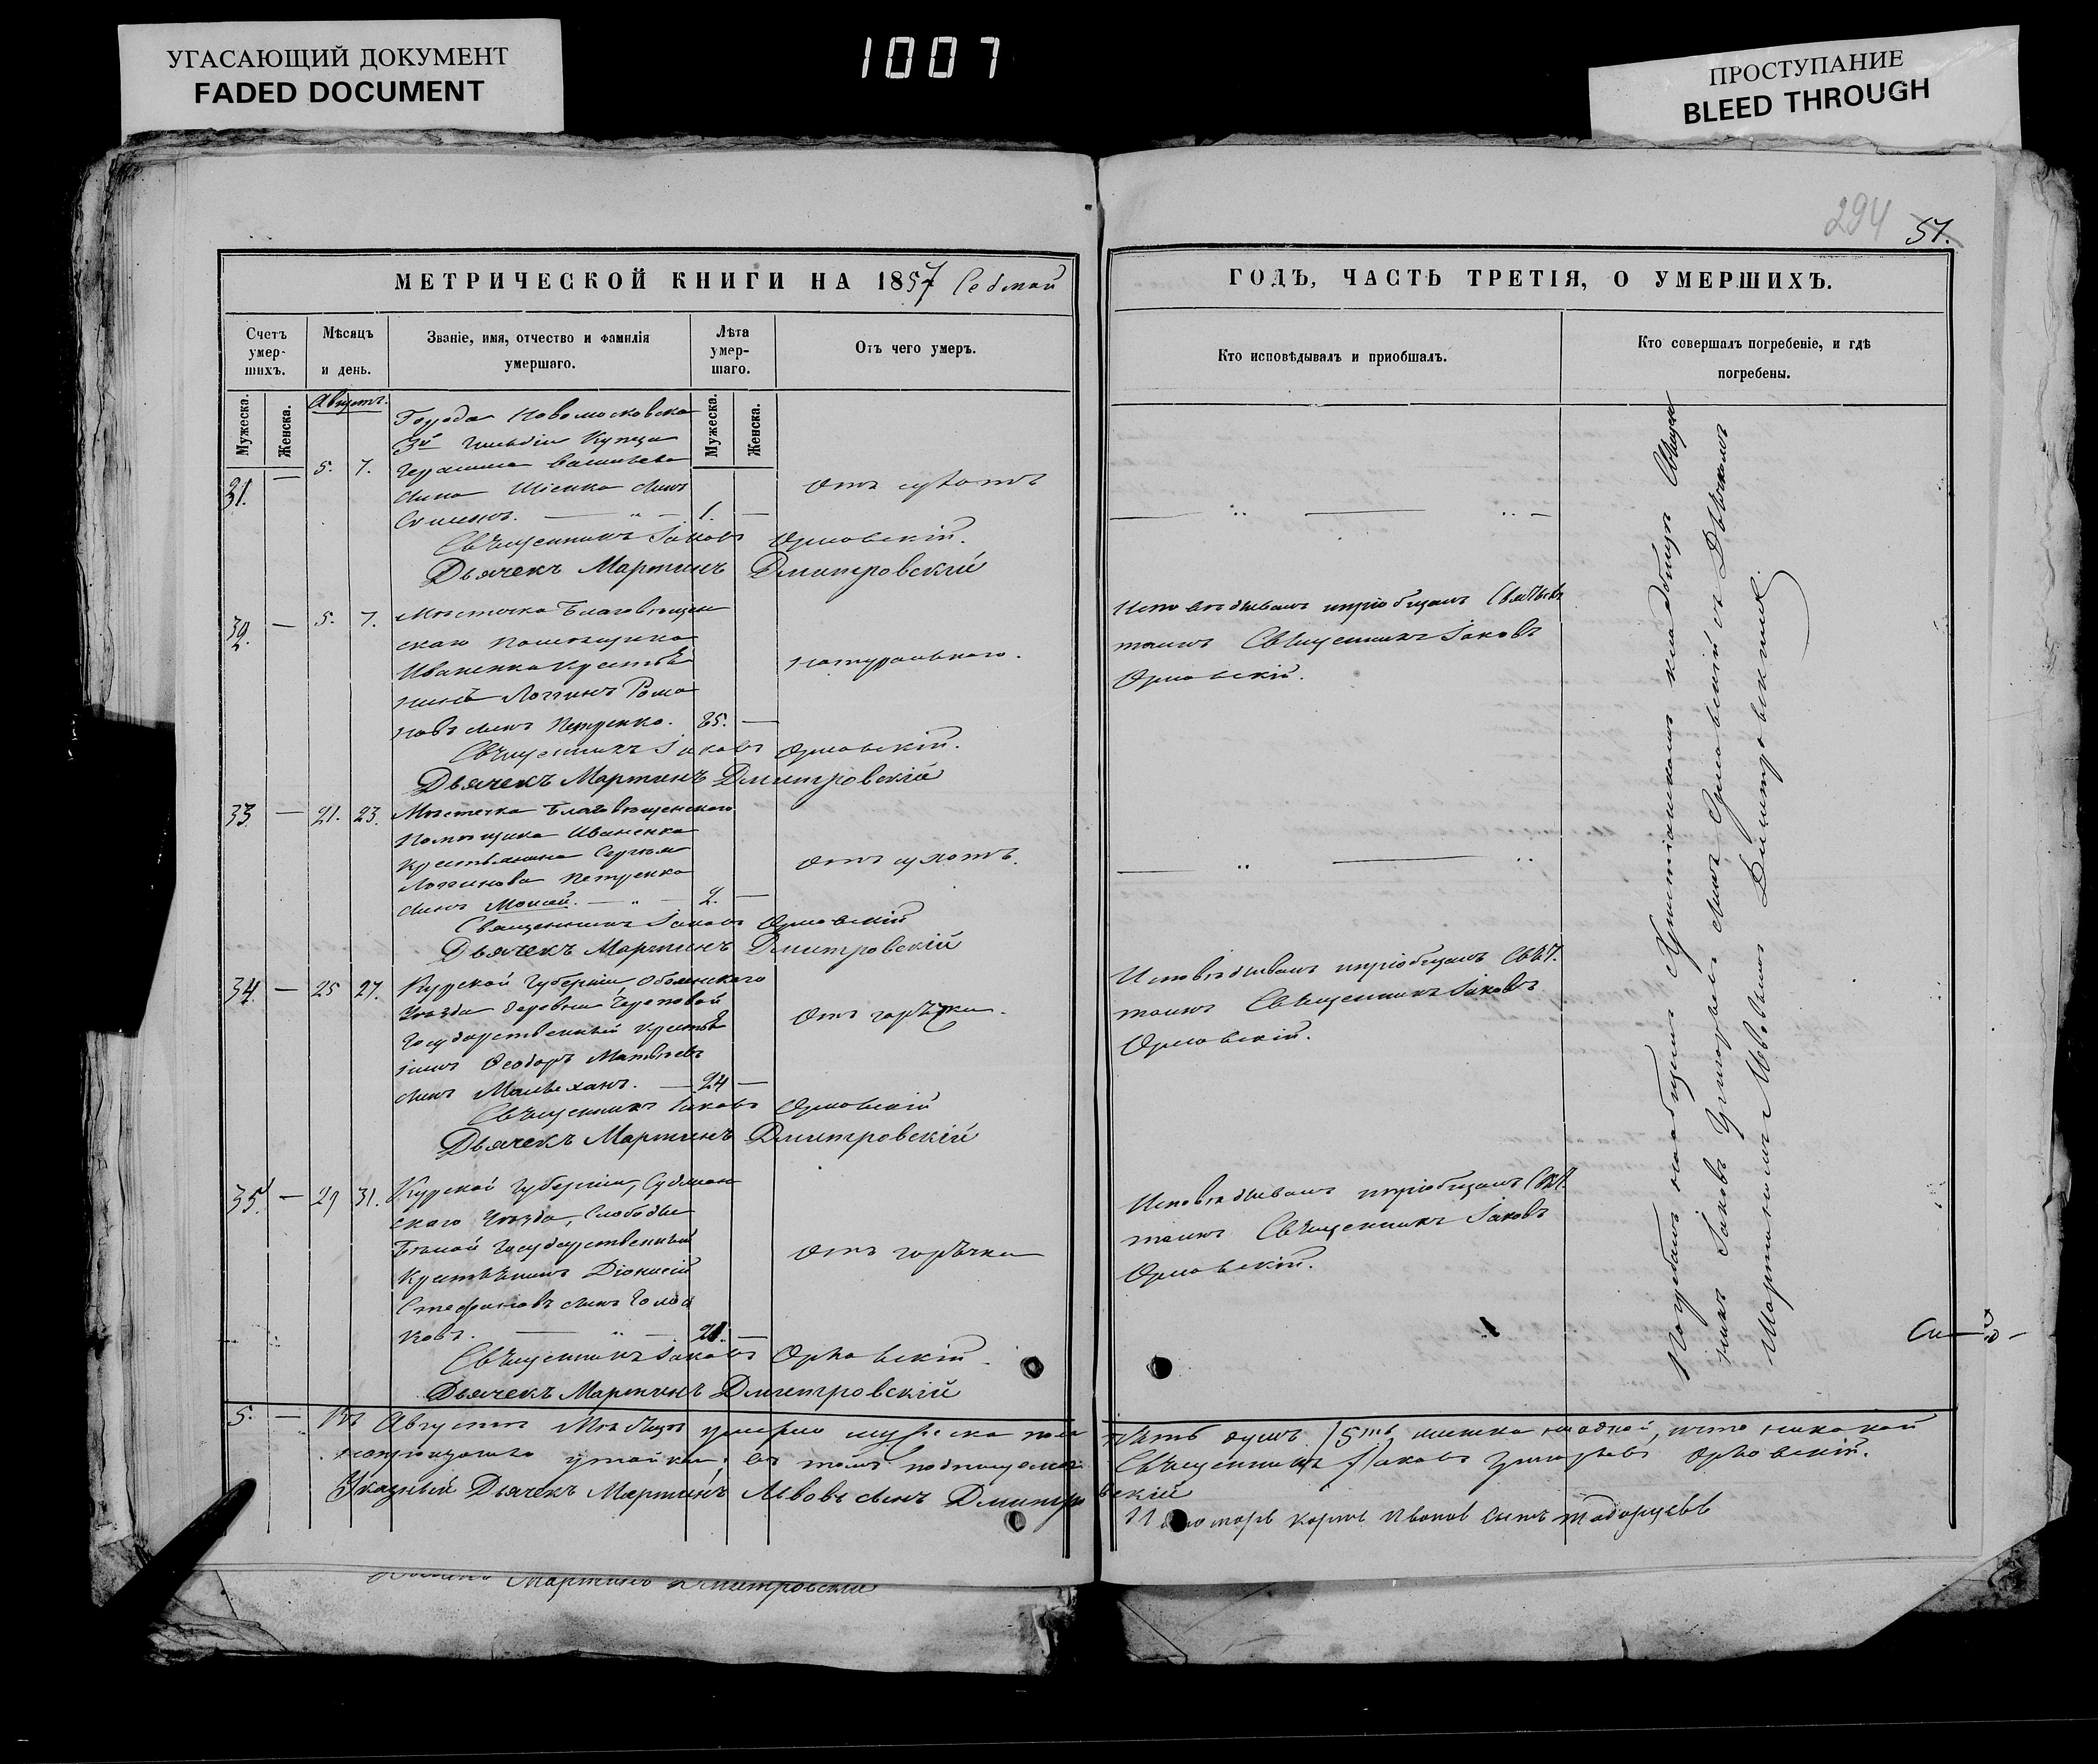 УГАСАЮЩИЙ ДОКУМЕНТ
FADED DOCUMENT
1007
ПРОСТУПАНИЕ
BLEED THROUGH
294 51.
МЕТРИЧЕСКОЙ КНИГИ НА 1857 Седмой
ГОДЪ, ЧАСТЬ ТРЕТІЯ, О УМЕРШИХЪ.
Счетъ умер-шихъ.
Мѣсяцъ и день.
Званіе, имя, отчество и фамилія умершаго.
Лѣта умер-шаго.
Отъ чего умеръ.
Кто исповѣдывалъ и пріобщалъ.
Кто совершалъ погребеніе, и гдѣ погребены.
Мужеска.
Женска.
Мужеска.
Женска.
Августъ.
31. — 5. 7.
Города Новомосковска
3й гильдіи Купца
сына
сынъ
Симеонъ. — 1. —
Священникъ Іаковъ Орловскій.
Дьячекъ Мартинъ Дмитровскій
32. — 5. 7.
Мѣстечка Благовѣщен
скаго помѣщика
Иваненка Крестья
нинъ Логгинъ Рома
новъ сынъ Петренко. 85. —
Натуральнаго.
Исповѣдывалъ и пріобщалъ Святыхъ
таинъ Священникъ Іаковъ
Орловскій.
Священникъ Іаковъ Орловскій.
Дьячекъ Мартинъ Дмитровскій
33. — 21. 23.
Мѣстечка Благовѣщенскаго
Помѣщика Иваненка
Крестьянина Сергѣя
Логгинова Петренка
сынъ Моисей. — 2. —
Священникъ Іаковъ Орловскій
Дьячекъ Мартинъ Дмитровскій
34. — 25 27.
Курской Губерніи, Обоянскаго
Уѣзда деревни Череповой
Государственный Крестья
нинъ Ѳеодоръ Матвѣевъ
сынъ — 24 —
Отъ горѣчки.
Исповѣдывалъ и пріобщалъ Свят.
таинъ Священникъ Іаковъ
Орловскій.
Священникъ Іаковъ Орловскій
Дьячекъ Мартинъ Дмитровскій
35. — 29 31.
Курской Губерніи, Суджан
скаго Уѣзда, Слободы
Бѣлой Государственный
Крестьянинъ Діонисій
Стефановъ сынъ
ковъ. — 21. —
Отъ горѣчки
Исповѣдывалъ и пріобщалъ Свят.
таинъ Священникъ Іаковъ
Орловскій.
Священникъ Іаковъ Орловскій.
Дьячекъ Мартинъ Дмитровскій
Погребалъ на общемъ Христіанскомъ кладбищѣ Священ
никъ Іаковъ Григорьевъ сынъ Орловскій съ Дьячкомъ
Мартиномъ Львовымъ Дмитровскимъ.
5. — Въ Августѣ Мѣсяцѣ умерло мужеска пола пять душъ /5ть/ женска ни одной, что никакой
утайки, въ томъ подписуемся Священникъ Іаковъ Григорьевъ Орловскій.
Указный Дьячекъ Мартинъ Львовъ сынъ Дмитровскій
Пономарь Карпъ Ивановъ сынъ
Мартинъ Дмитровскій